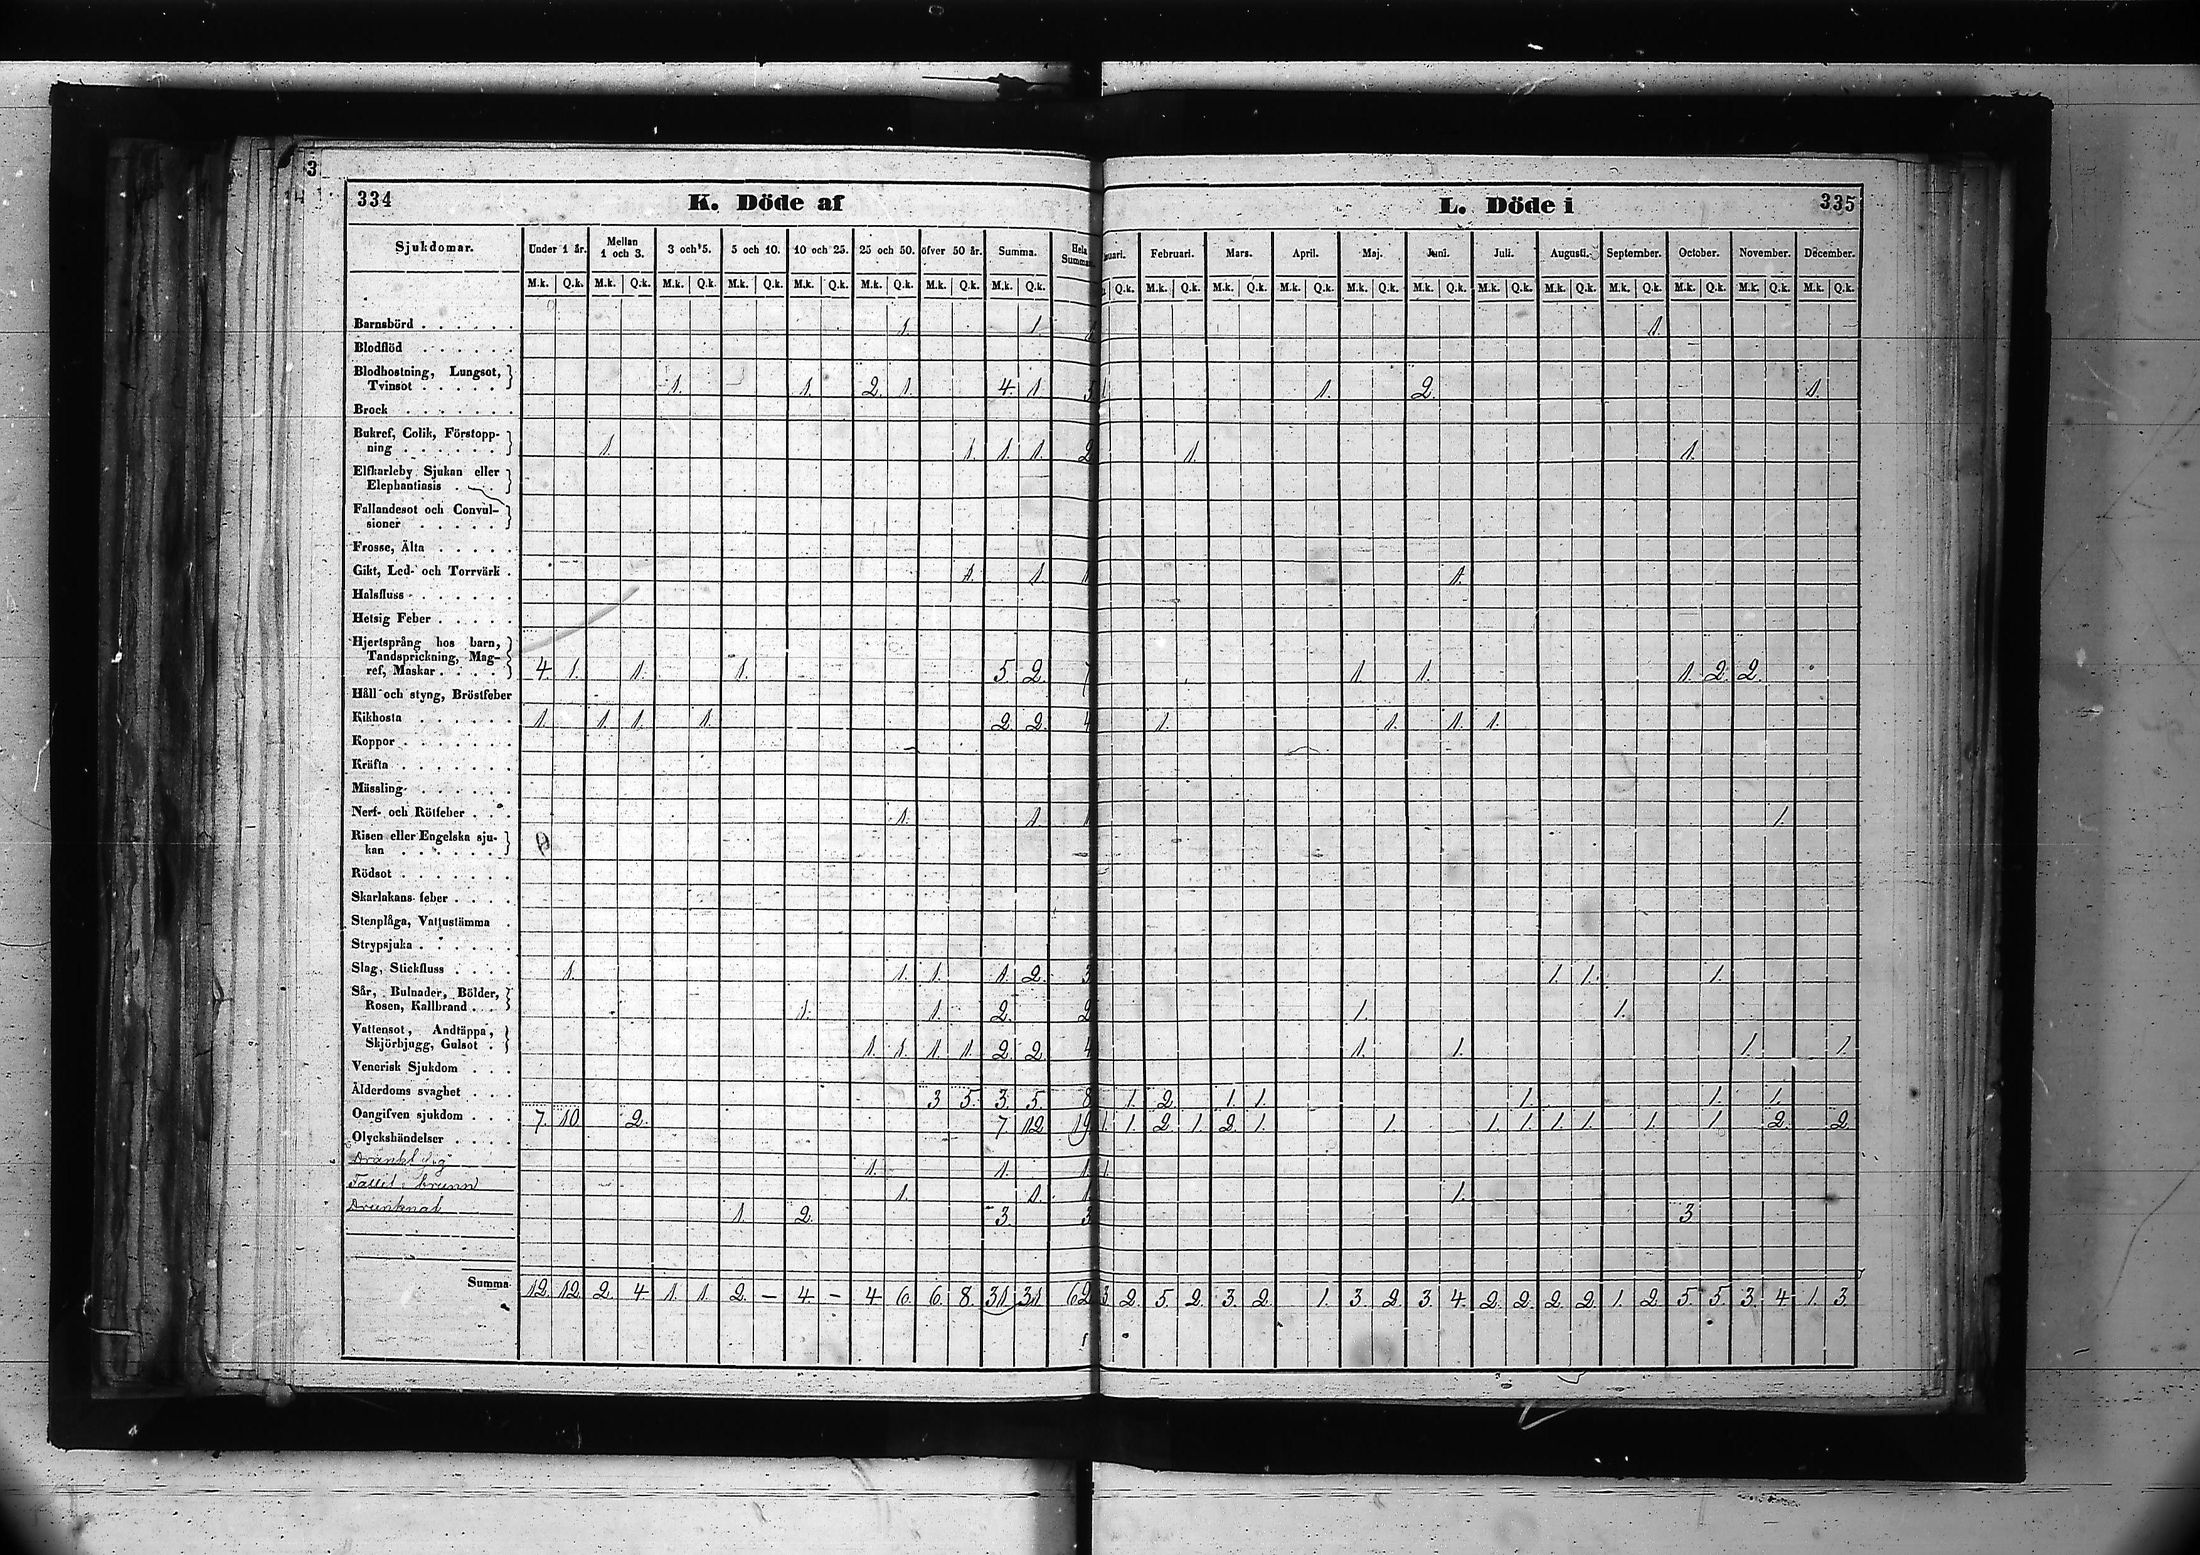 3
334 K. Döde af L. Döde i 335
Sjukdomar. Under 1 år. Mellan 1 och 3. 3 och 5. 5 och 10. 10 och 25. 25 och 50. öfver 50 år. Summa. Hela Summan. Februari. Mars. April. Maj. Juni. Juli. Augusti. September. October. November. December.
M.k. Q.k. M.k. Q.k. M.k. Q.k. M.k. Q.k. M.k. Q.k. M.k. Q.k. M.k. Q.k. M.k. Q.k. Q.k. M.k. Q.k. M.k. Q.k. M.k. Q.k. M.k. Q.k. M.k. Q.k. M.k. Q.k. M.k. Q.k. M.k. Q.k. M.k. Q.k. M.k. Q.k. M.k. Q.k.
Barnsbörd 1. 1. 1 1.
Blodflöd
Blodhostning, Lungsot,
Tvinsot 1. 1. 2. 1. 4. 1. 5 1 1. 2. 1.
Brock
Bukref, Colik, Förstopp-
ning 1. 1. 1. 1. 2 1. 1.
Elfkarleby Sjukan eller
Elephantiasis
Fallandesot och Convul-
sioner
Frosse, Älta
Gikt, Led- och Torrvärk 1. 1. 1 1.
Halsfluss
Hetsig Feber
Hjertsprång hos barn,
Tandsprickning, Mag-
ref, Maskar 4. 1. 1. 1. 5. 2. 7 1. 1. 1. 2. 2.
Håll och styng, Bröstfeber
Kikhosta 1. 1. 1. 1. 2. 2. 4 1. 1. 1. 1.
Koppor
Kräfta
Mässling
Nerf- och Rötfeber 1. 1. 1 1.
Risen eller Engelska sju-
kan
Rödsot
Skarlakans feber
Stenplåga, Vattustämma
Strypsjuka
Slag, Stickfluss 1. 1. 1. 1. 2. 3 1. 1. 1.
Sår, Bulnader, Bölder,
Rosen, Kallbrand 1. 1. 2. 2 1. 1.
Vattensot, Andtäppa,
Skjörbjugg, Gulsot 1. 1. 1. 1. 2. 2. 4 1. 1. 1. 1.
Venerisk Sjukdom
Ålderdoms svaghet 3. 5. 3. 5. 8. 1. 2. 1. 1. 1. 1. 1.
Oangifven sjukdom 7. 10. 2. 7 12 19 1. 1. 2. 1. 2. 1. 1. 1. 1. 1. 1. 1. 1. 2. 2.
Olyckshändelser
Dränkt sig 1. 1. 1. 1.
Fallit i brunn 1. 1. 1 1.
Drunknat 1. 2. 3. 3 3
Summa 12. 12. 2. 4. 1. 1. 2. – 4. – 4. 6. 6. 8. 31. 31 62 3 2. 5. 2. 3. 2. 1. 3. 2 3. 4. 2. 2. 2. 2. 1. 2. 5. 5. 3. 4. 1. 3.